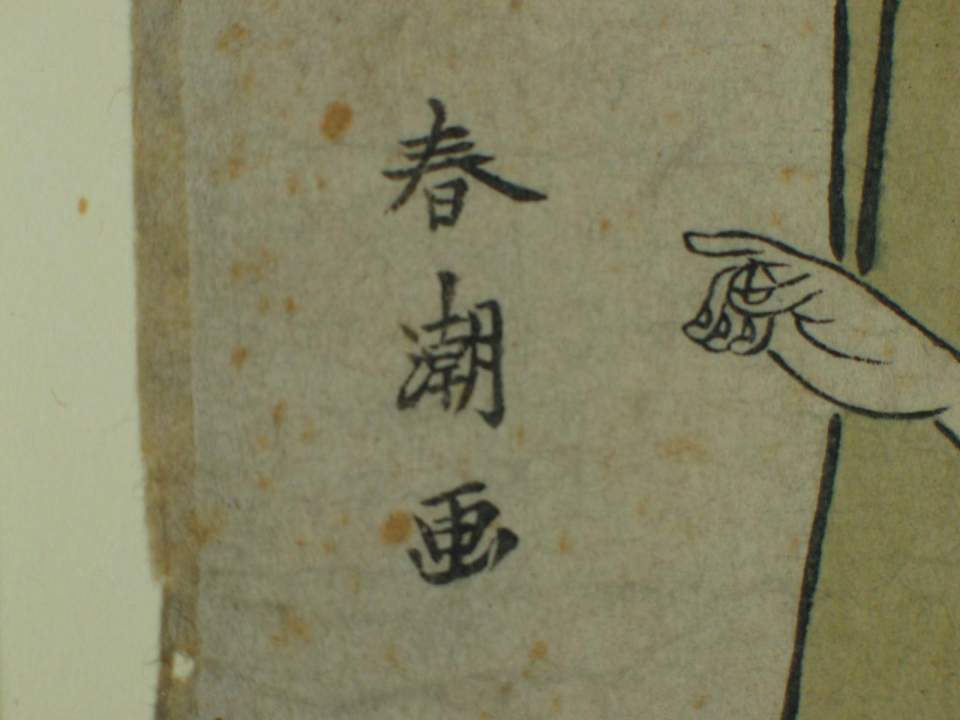 春潮画